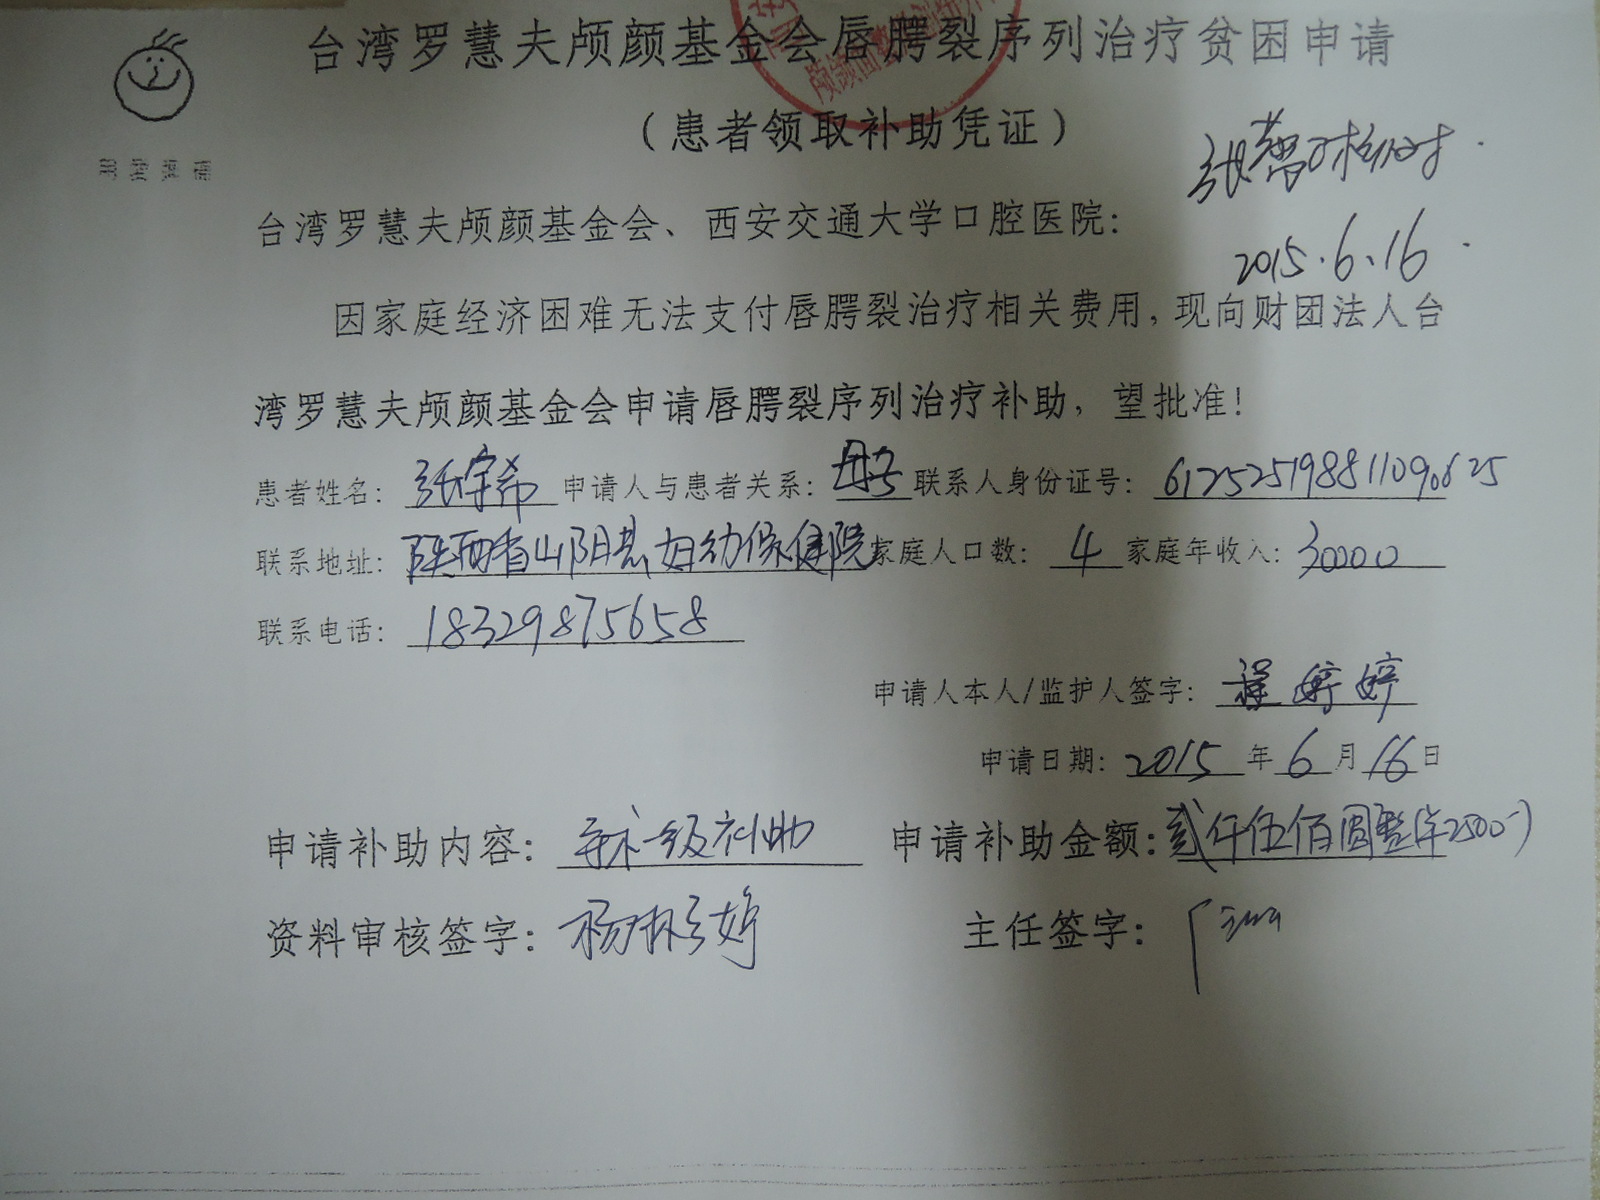 台湾罗慧夫颅颜基金会唇腭裂序列治疗贫困申请
（患者领取补助凭证）
2015.6.16
台湾罗慧夫颅颜基金会、西安交通大学口腔医院：
因家庭经济困难无法支付唇腭裂治疗相关费用，现向财团法人台
湾罗慧夫颅颜基金会申请唇腭裂序列治疗补助，望批准！
患者姓名：张宇希 申请人与患者关系：母子 联系人身份证号：612525198811090625
联系地址：陕西省山阳县妇幼保健院 家庭人口数：4 家庭年收入：30000
联系电话：18329875658
申请人本人/监护人签字：程婷婷
申请日期：2015年6月16日
申请补助内容：手术一级补助 申请补助金额：贰仟伍佰圆整(￥2500-)
资料审核签字：杨 婷 主任签字：